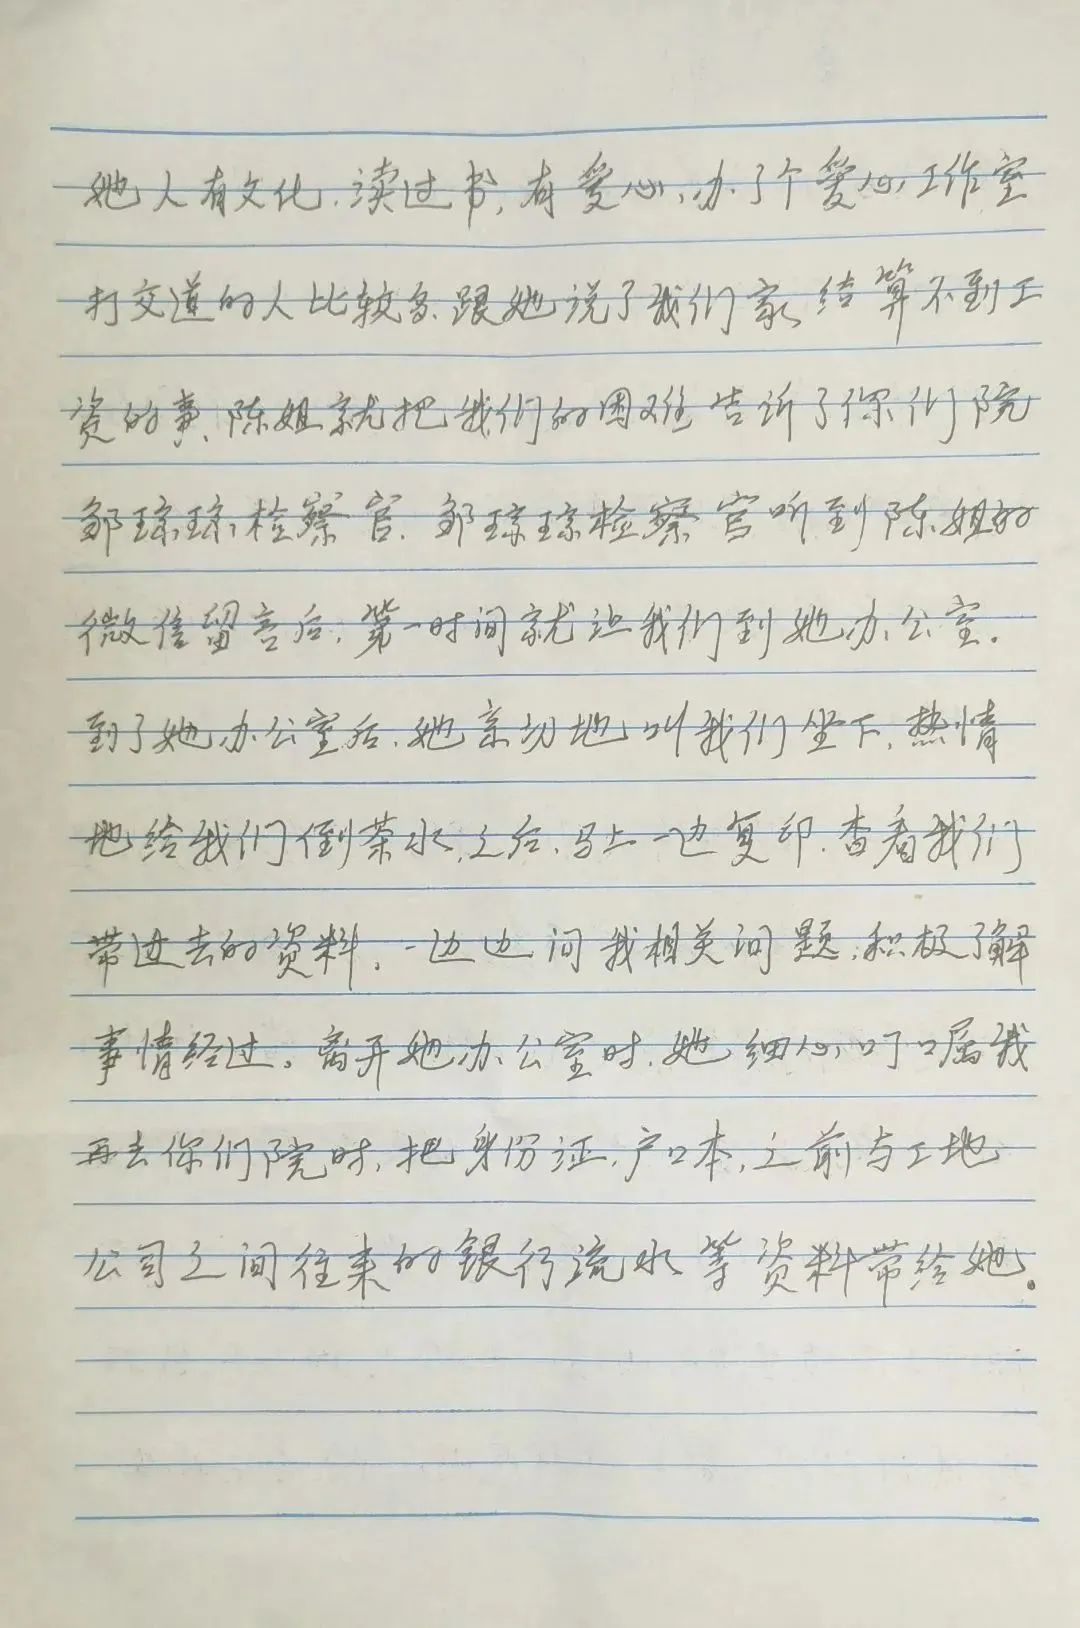 她人有文化、读过书,有爱心,办了个爱心工作室
打交道的人比较多、跟她说了我们家结算不到工
资的事、陈姐就把我们的困难告诉了你们院
邹琼琼检察官.邹琼琼检察官听到陈姐的
微信留言后,第一时间就让我们到她办公室.
到了她办公室后.她亲切地叫我们坐下,热情
地给我们倒茶水,之后,马上一边复印.查看我们
带过去的资料,一边边问我相关问题,积极了解
事情经过。离开她办公室时.她细心叮嘱我
再去你们院时,把身份证.户口本,之前与工地
公司之间往来的银行流水等资料带给她.